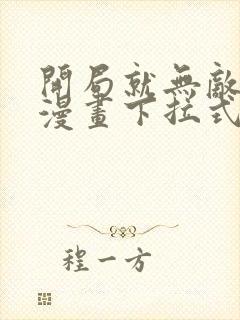 開局就無敵
漫畫下拉式
程一方